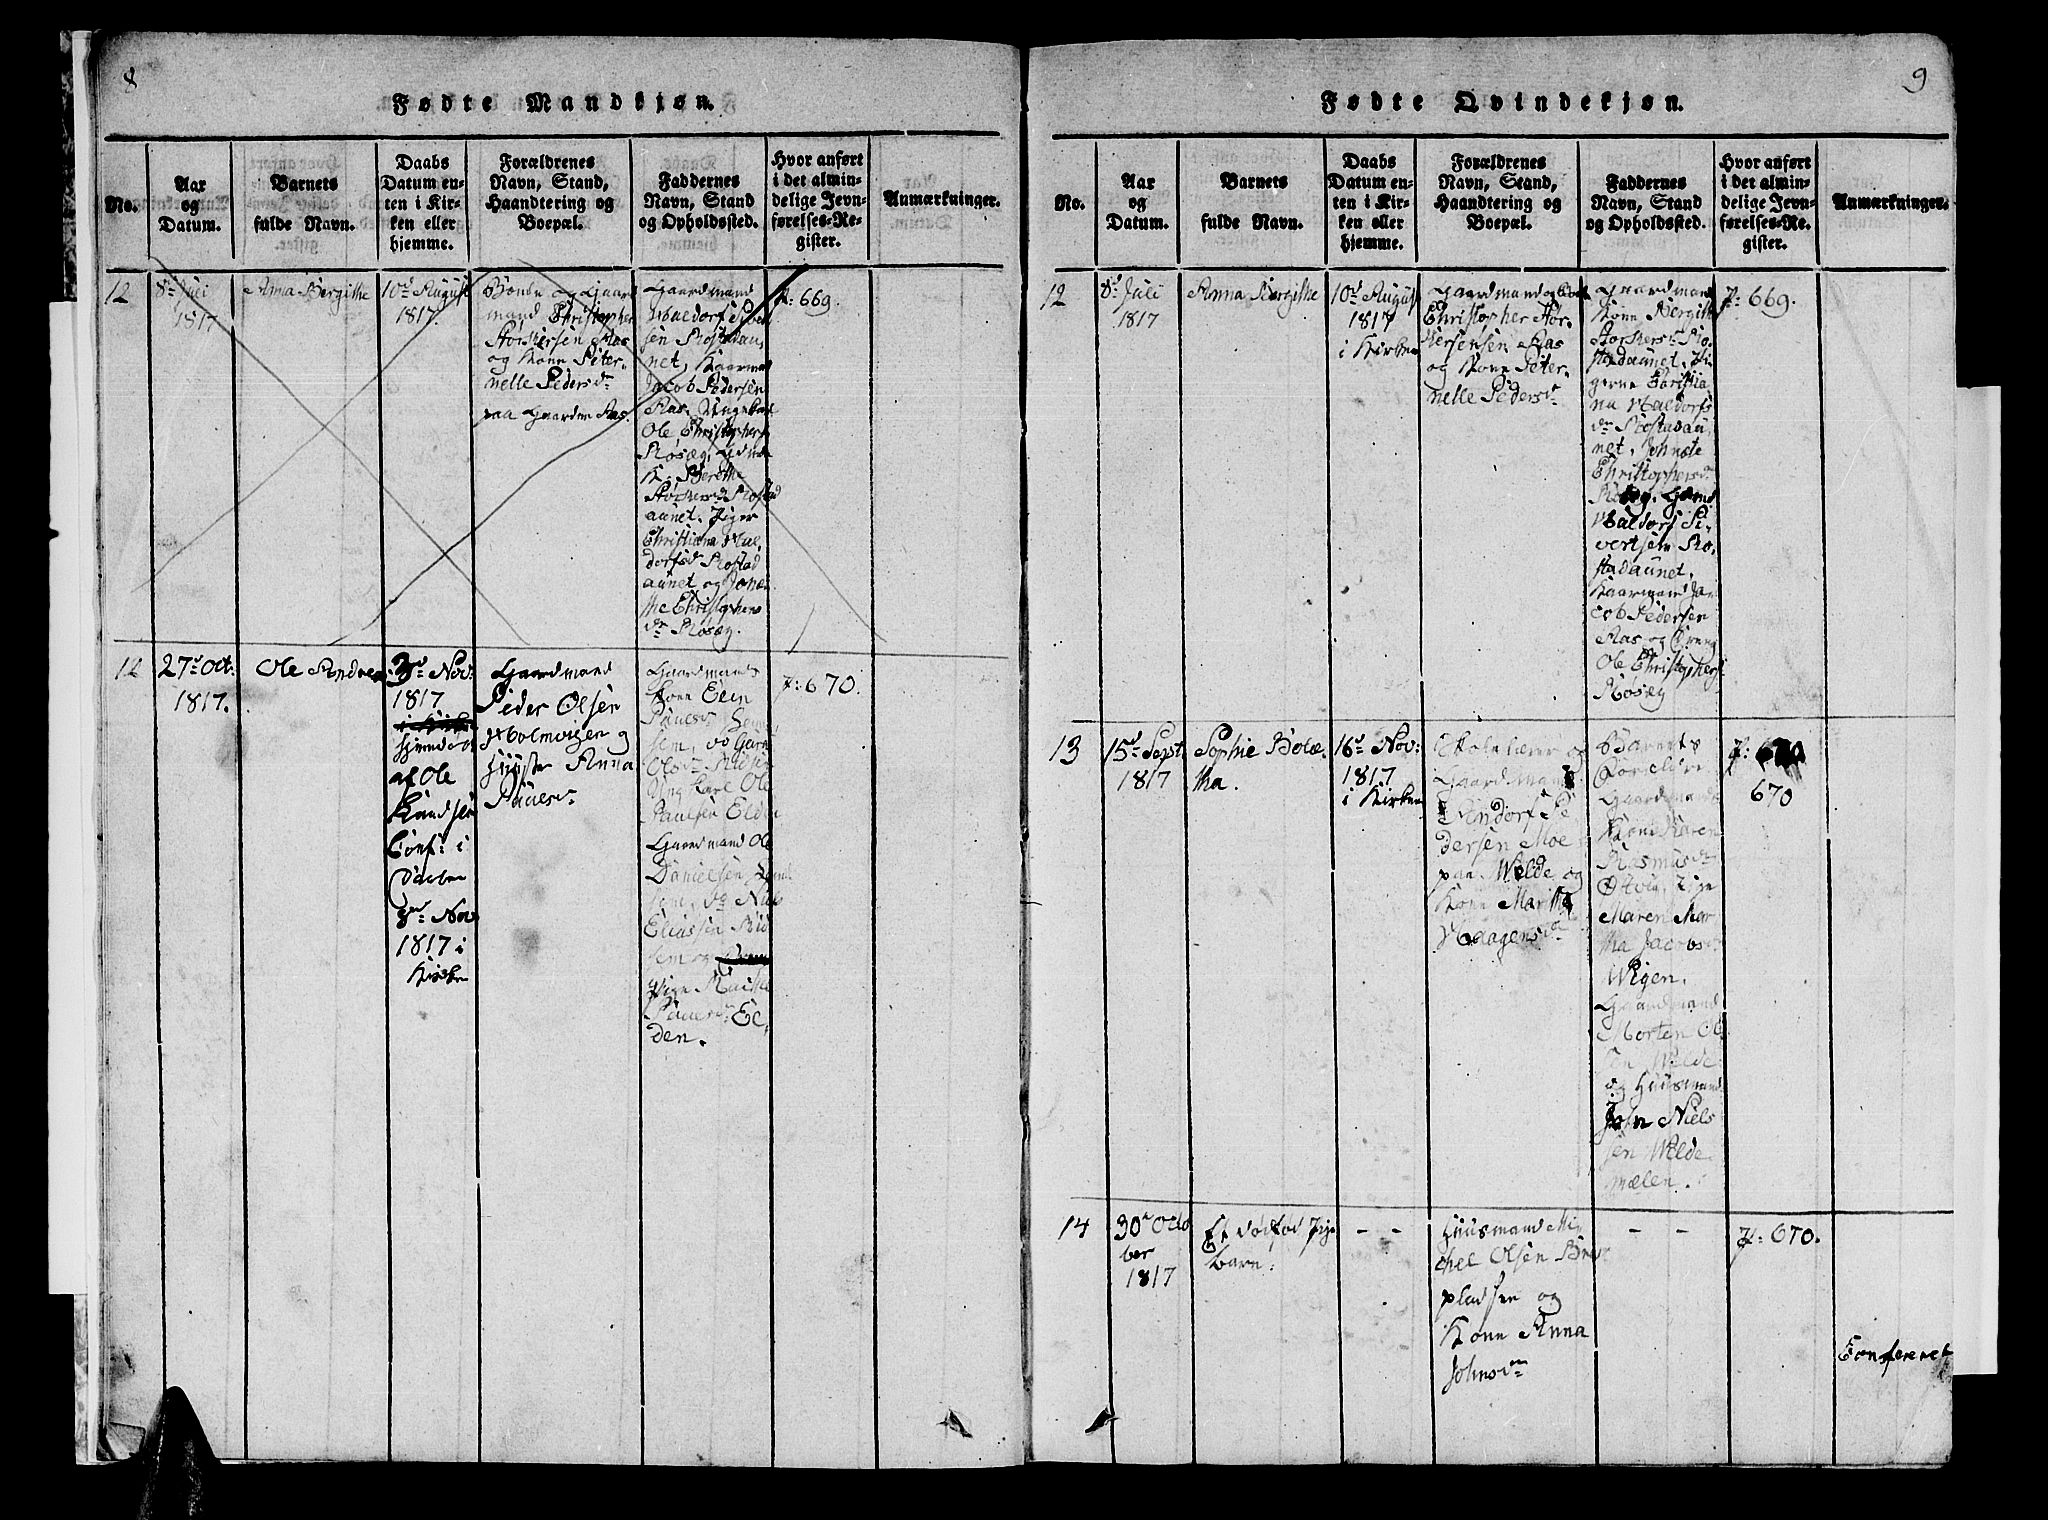 8
Fødte Mandkjøn.
No.
Aar
og
Datum.
Barnets
fulde Navn.
Daabs
Datum en-
ten i Kir-
ken eller
hjemme.
Forældrenes
Navn, Stand,
Haandtering og
Boepæl.
Faddernes
Navn, Stand
og Opholdssted.
Hvor anført
i det almin-
delige Jevn-
førelses-Re-
gister.
Anmærkninger.
12
8de Juli
1817
Anna Bergithe
10de August
1817.
Bonde og Gaard
mand Christopher
Storkersen Aas
og Kone Peter-
nelle Pedersdr
paa Gaarden Aas.
Gaardmand
Waldorf Siver
sen Rostadau
net, Kaarmand
Jacob Pedersen
Aas. Ungekarl
Ole Christophers
Røsæg,
K. Berethe
Storkersd Rostad
aunet. Piger
Christiana Wal
dorfsd Rostad
aunet og Johne
the Christophers
dr Røsæg.
f: 669.
12
27de Oct.
1817.
Ole Andreas
3de Nov:
1817
hjemdøbt
af Ole
Knudsen
Conf: i
Daaben
8de Nov
1817 i
Kirken
Gaardmand
Peder Olsen
Holmvigen og
Hustr Anna
Paulsdr
Gaardmands
Kone Elen
Paulsdr
sem,
Ung karl Ole
Paulsen Elden
Gaardmand Ole
Danielsen
sem, do Niels
Eliassen
sem og
Pige
Paulsdr El-
den.
f: 670.
9
Fødte Qvindekjøn.
No.
Aar
og
Datum.
Barnets
fulde Navn.
Daabs
Datum en-
ten i Kir-
ken eller
hjemme.
Forældrenes
Navn, Stand,
Haandtering og
Boepæl.
Faddernes
Navn, Stand
og Opholdssted.
Hvor anført
i det almin-
delige Jevn-
førelses-Re-
gister.
Anmærkninger.
12
8de Juli
1817
Anna Bergithe
10de August
1817
i Kirken
Gaardmand og
Christopher Stor-
kersensen Aas
og Kone Peter-
nelle Pedersdr
Gaardmands
Kone Bergithe
Storkersdr Ro-
stadaunet, Pi-
gerne Christia
na Waldorfs
dr Rostadau
net, Johnete
Christophersdr
Røsæg. Gaardmd
Waldorf Si-
vertsen Ro-
stadaunet,
Kaarmand Ja-
cob Pedersen
Aas og Dreng
Ole Christophers
Røsæg
f: 669.
13
15de Sept
1817
Sophie Bolæ-
tha.
16de Nov:
1817
i Kirken
Skolelærer og
Gaardmand
Endorf Pe
dersen Moe
paa Welde og
Kone Martha
Haagensdr
Barnets
Forældre
Gaardmands
Kone Karen
Rasmusdr
Pige
Maren Mar
tha Jacobsdr
Wigen.
Gaardmand
Morten Ol
sen Welde
og Huusmand
John Niels
sen Welde
mælen.
f:
670
14
30te Octo
ber
1817
Et dødfød Pige
barn.
- -
Huusmand Mi
chel Olsen
pladsen og
Kone Anna
Johnsdr
- -
f: 670.
Confereret